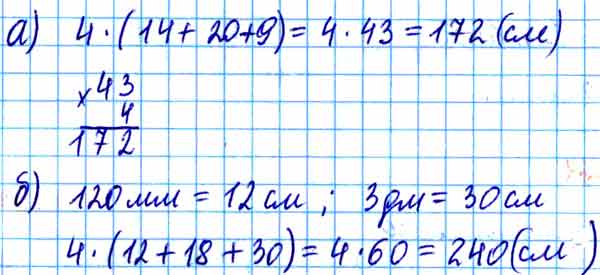 а) 4 · (14 + 20 + 9) = 4 · 43 = 172 (см)
× 43
4
172
б) 120 мм = 12 см ; 3 дм = 30 см
4 · (12 + 18 + 30) = 4 · 60 = 240 (см)